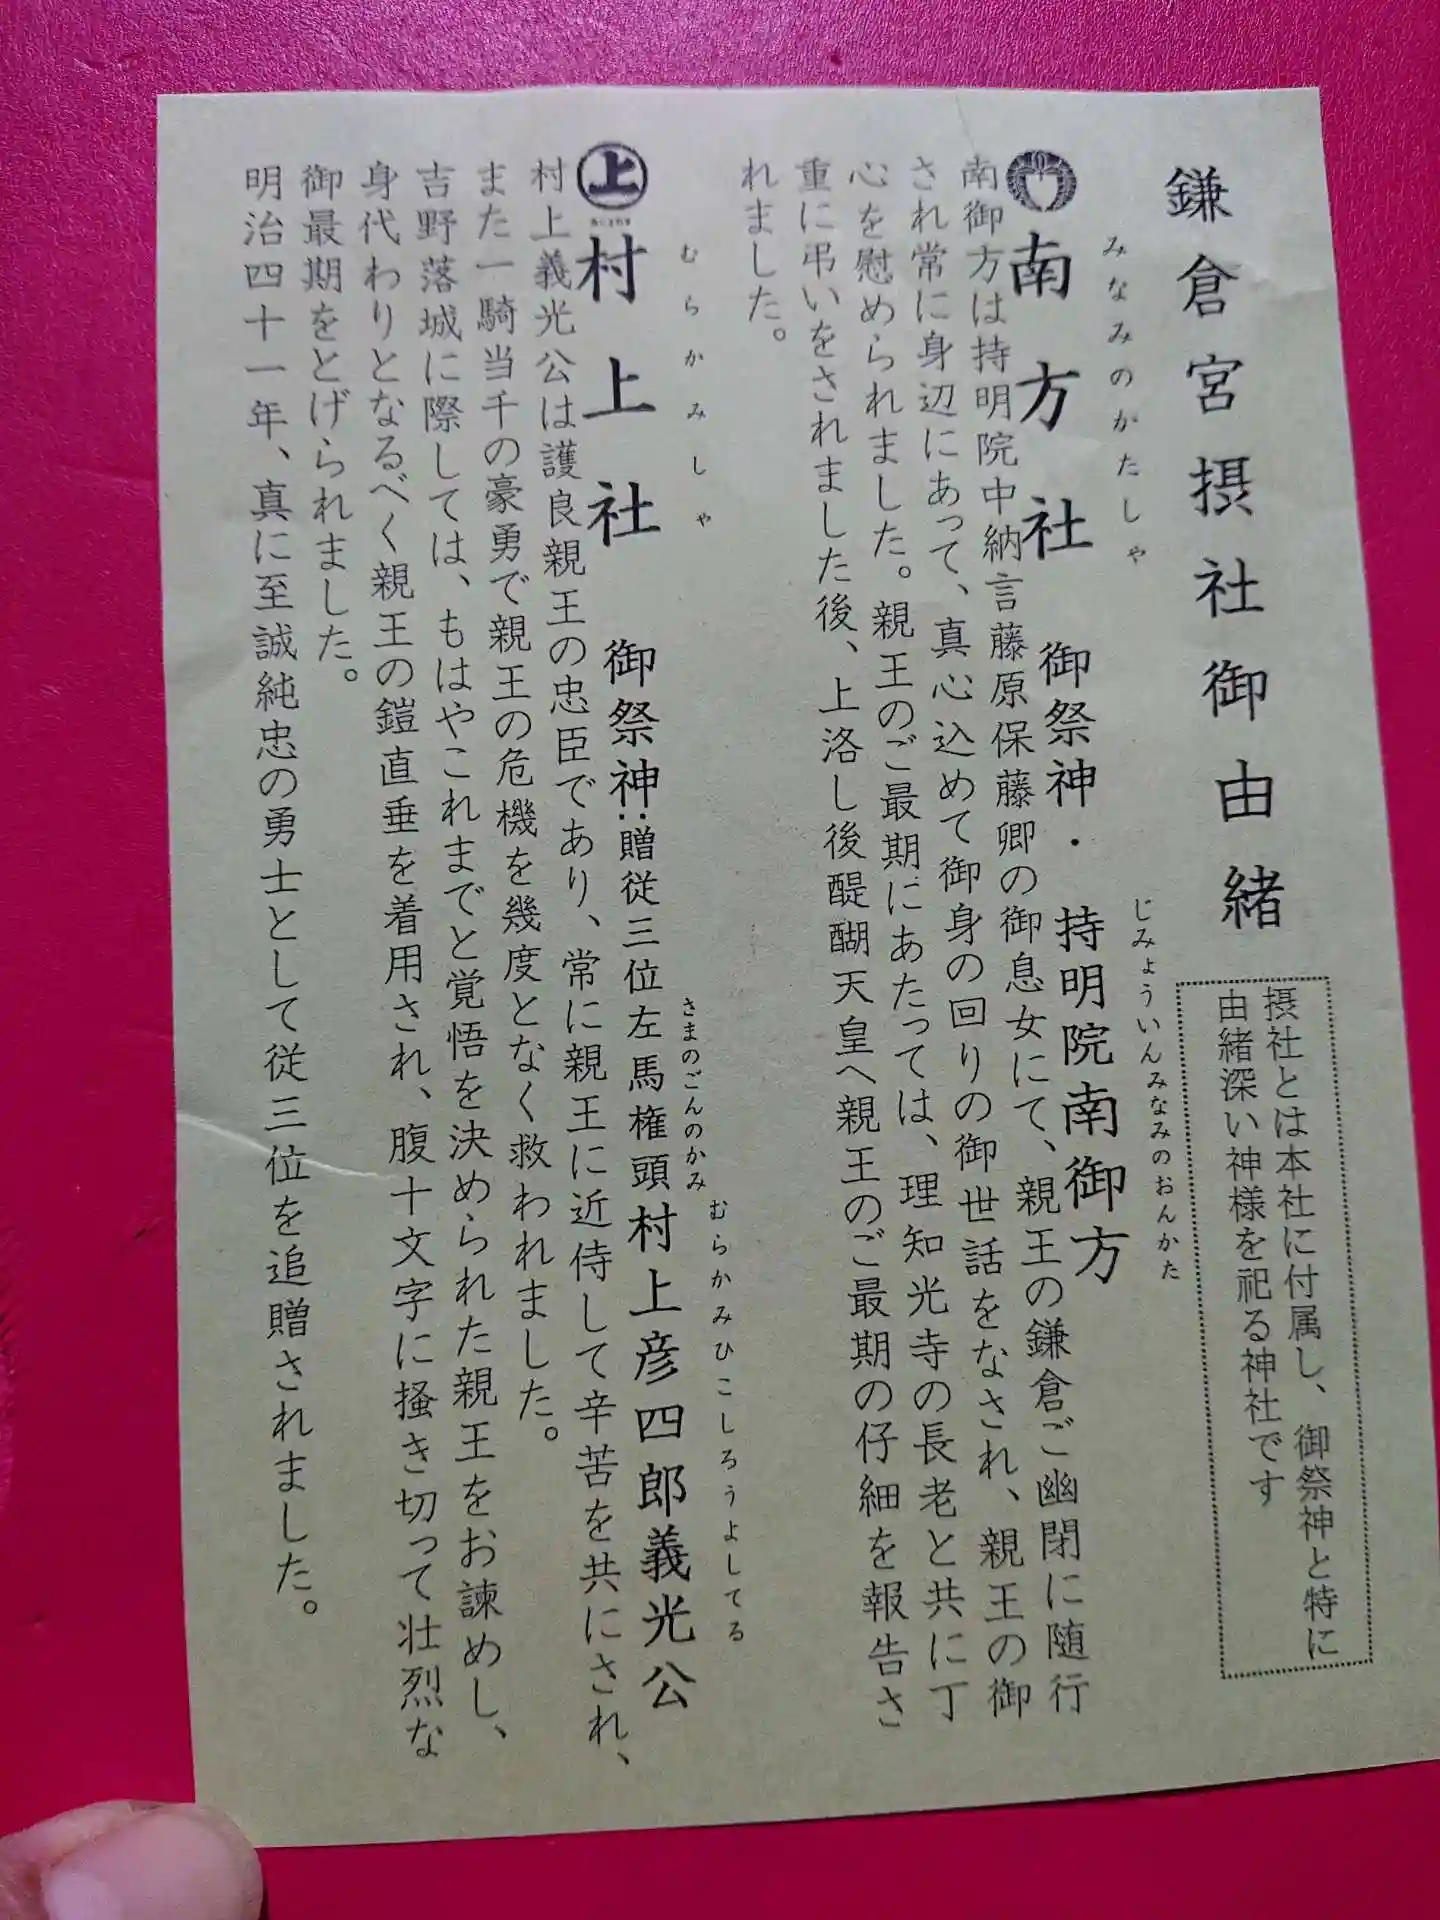 鎌倉宮摂社御由緒
摂社とは本社に付属し、御祭神と特に
由緒深い神様を祀る神社です
みなみのかたしゃ
じみょういんみなみのおんかた
南方社 御祭神・持明院南御方
南御方は持明院中納言藤原保藤卿の御息女にて、親王の鎌倉ご幽閉に随行
され常に身辺にあって、真心込めて御身の回りの御世話をなされ、親王の御
心を慰められました。親王のご最期にあたっては、理知光寺の長老と共に丁
重に弔いをされました後、上洛し後醍醐天皇へ親王のご最期の仔細を報告さ
れました。
むらかみしゃ
さまのごんのかみ むらかみひこしろうよしてる
上
村上社 御祭神:贈従三位左馬権頭村上彦四郎義光公
村上義光公は護良親王の忠臣であり、常に親王に近侍して辛苦を共にされ、
また一騎当千の豪勇で親王の危機を幾度となく救われました。
吉野落城に際しては、もはやこれまでと覚悟を決められた親王をお諫めし、
身代わりとなるべく親王の鎧直垂を着用され、腹十文字に掻き切って壮烈な
御最期をとげられました。
明治四十一年、真に至誠純忠の勇士として従三位を追贈されました。